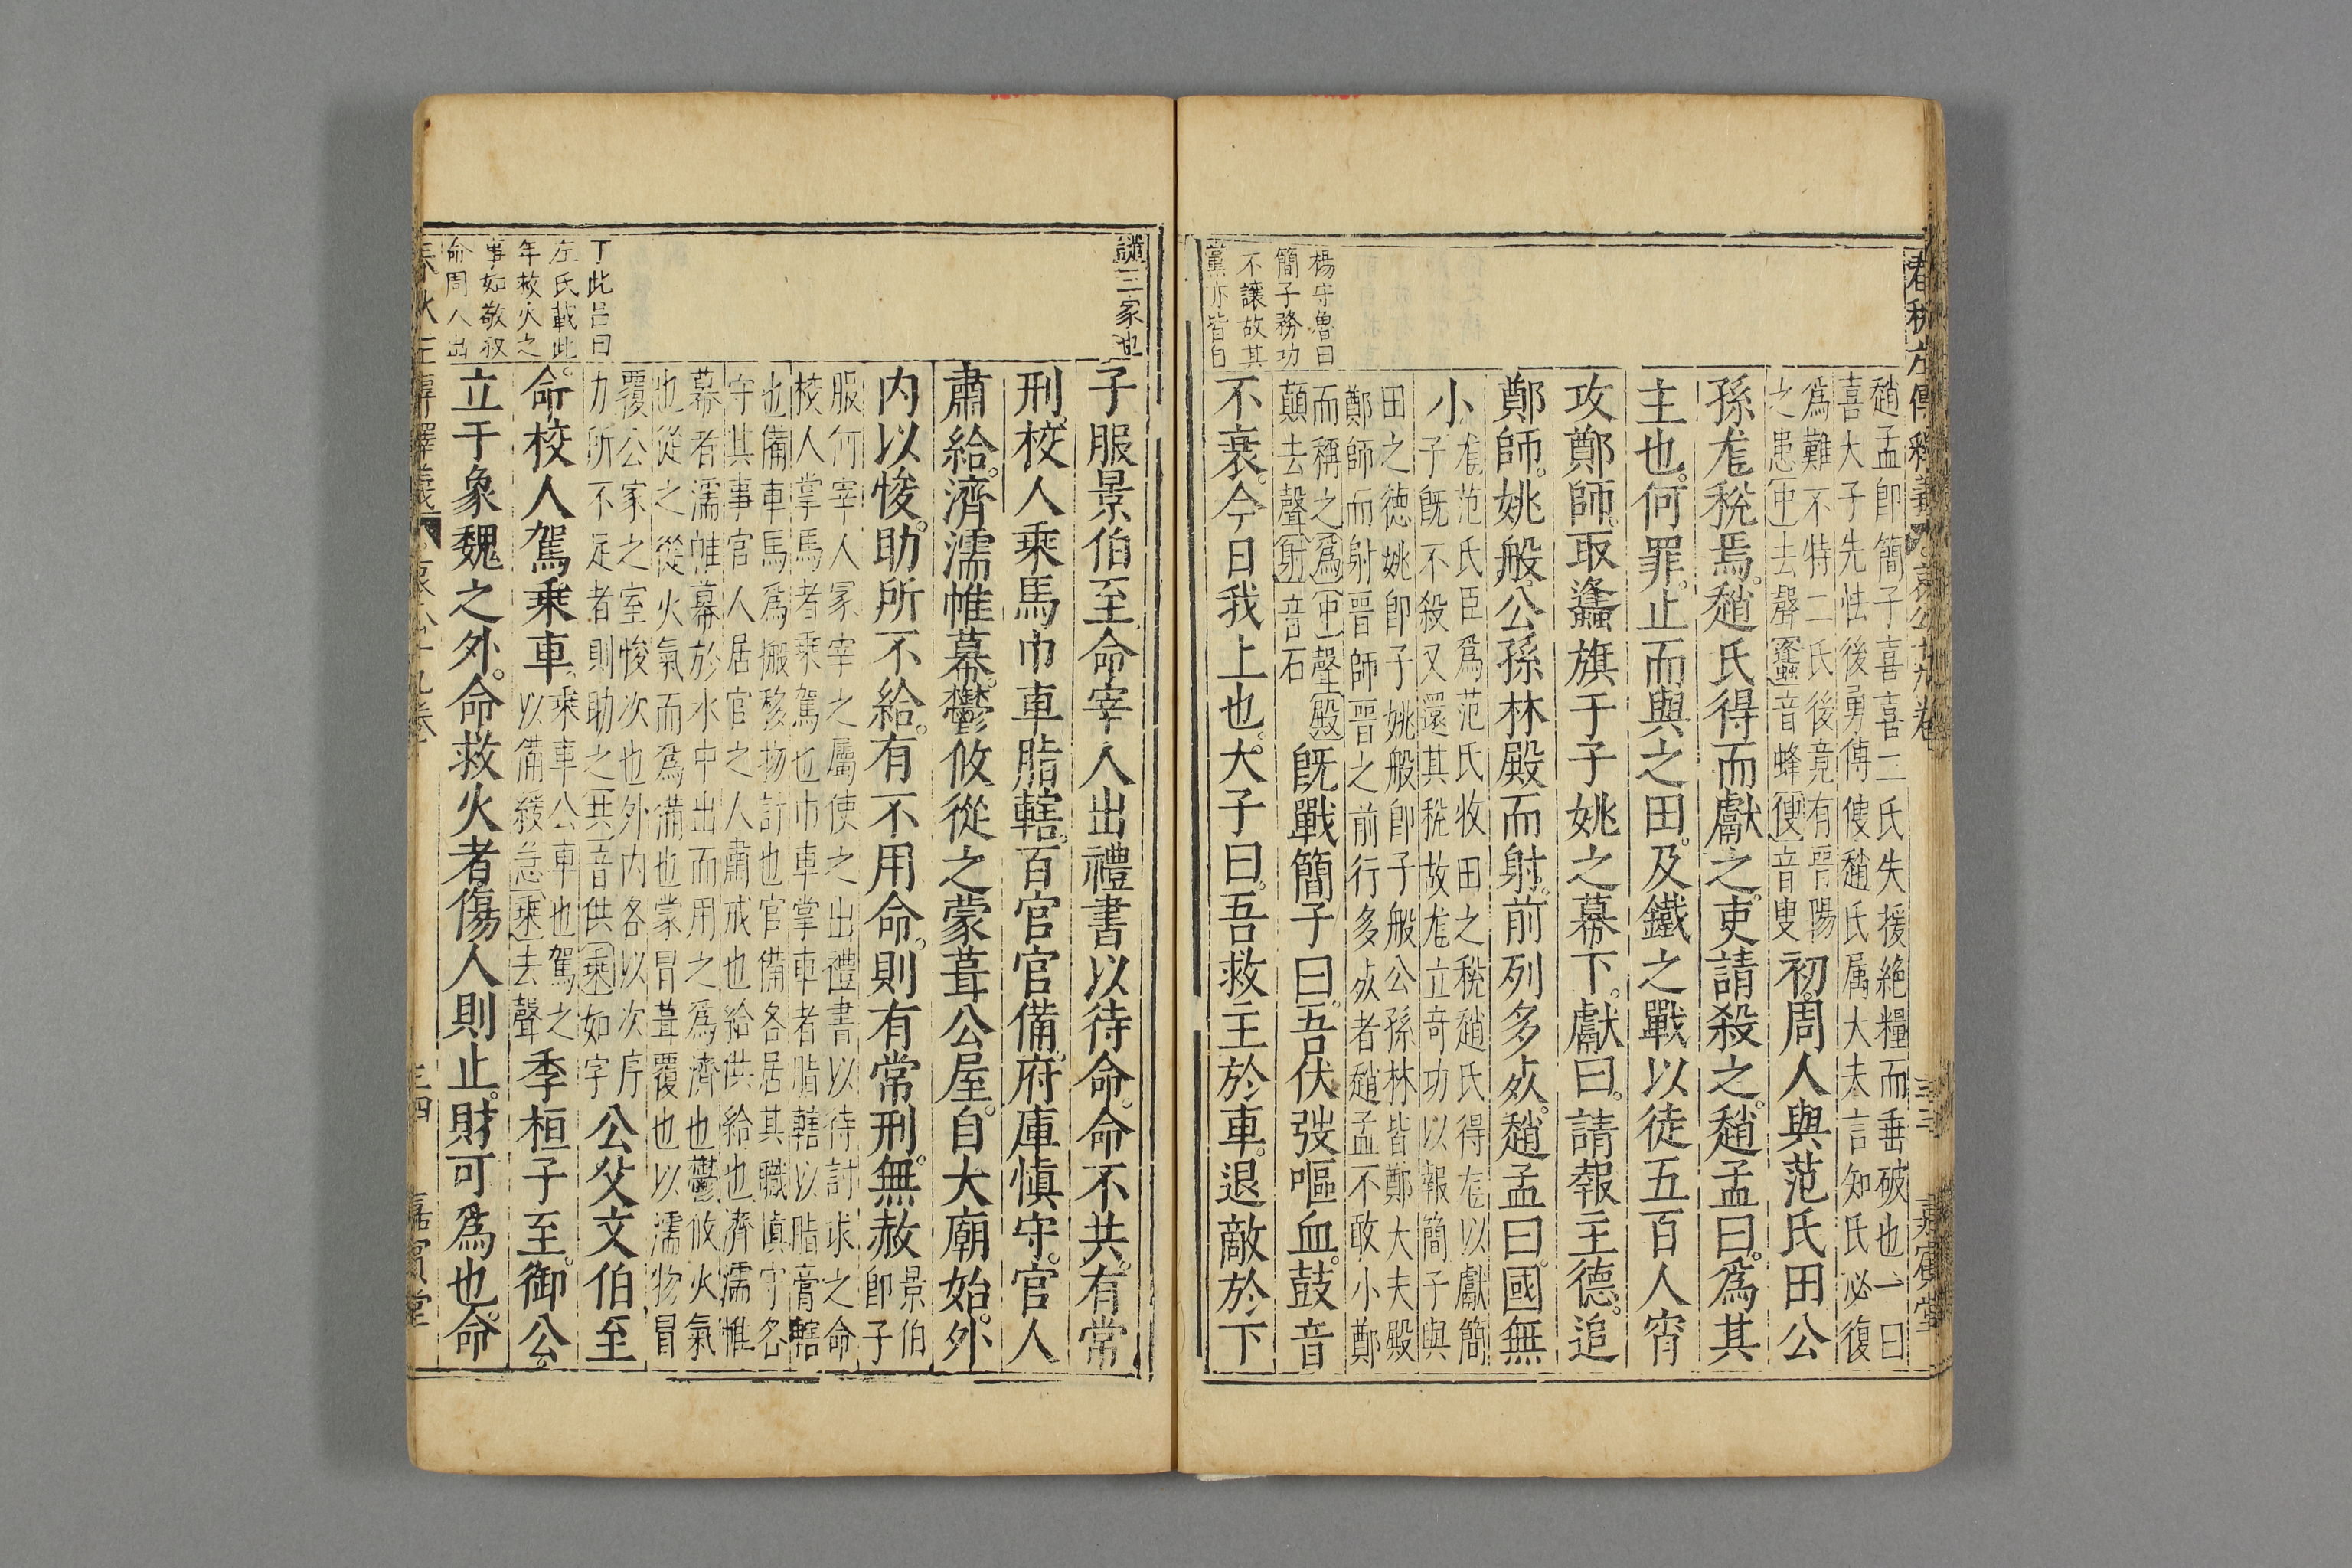 春秋左傳釋義
嘉賓堂
楊守魯曰
簡子務功
不讓故其
黨亦皆自
趙孟即簡子喜喜二氏失援絕糧而垂破也一曰
喜大子先怯後勇傅傁趙氏属大夫言知氏必復
爲難不特二氏後竟有晉陽
之患中去聲蠭音蜂傁音叟
初周人與范氏田公
孫尨稅焉趙氏得而獻之吏請殺之趙孟曰爲其
主也何罪止而與之田及鐵之戰以徒五百人宵
攻鄭師取蠭旗于子姚之幕下獻曰請報主德追
鄭師姚般公孫林殿而射前列多㱥趙孟曰國無
小
尨范氏臣爲范氏收田之稅趙氏得尨以獻簡
子旣不殺又還其稅故尨立奇功以報簡子與
田之德姚即子姚般即子般公孫林皆鄭大夫殿
鄭師而射晉師晉之前行多㱥者趙孟不敢小鄭
而稱之爲中聲殿
顛去聲射音石
旣戰簡子曰吾伏弢嘔血鼓音
不衰今日我上也大子曰吾救主於車退敵於下
譏三家也
子服景伯至命宰人出禮書以待命命不共有常
刑校人乘馬巾車脂轄百官官備府庫愼守官人
肅給濟濡帷幕鬱攸從之蒙葺公屋自大廟始外
内以悛助所不給有不用命則有常刑無赦
景伯
即子
服何宰人冢宰之屬使之出禮書以待討求之命
校人掌馬者乘駕也巾車掌車者脂轄以脂膏轄
也備車馬爲搬移物計也官備各居其職愼守各
守其事官人居官之人肅戒也給供給也濟濡帷
幕者濡帷幕於水中出而用之爲濟也鬱攸火氣
也從之從火氣而爲備也蒙冒葺覆也以濡物冒
覆公家之室悛次也外内各以次序
力所不足者則助之共音供乘如字
公父文伯至
命校人駕乘車
乘車公車也駕之
以備緩急乘去聲
季桓子至御公
立于象魏之外命救火者傷人則止財可爲也命
丁此呂曰
左氏載此
年救火之
事如敬叔
命周人出
嘉賓堂